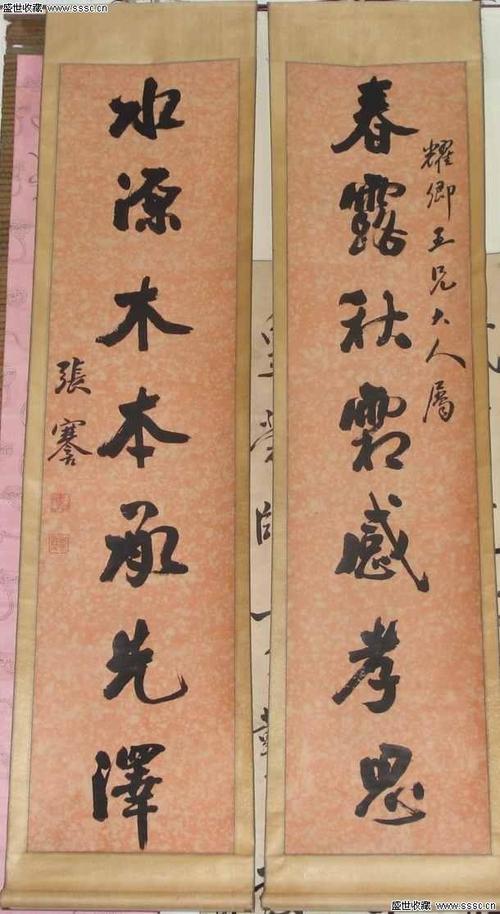 盛世收藏 www.sssc.cn
耀卿五兄大人属
春露秋霜感孝思
水源木本承先泽
張謇
盛世收藏 www.sssc.cn